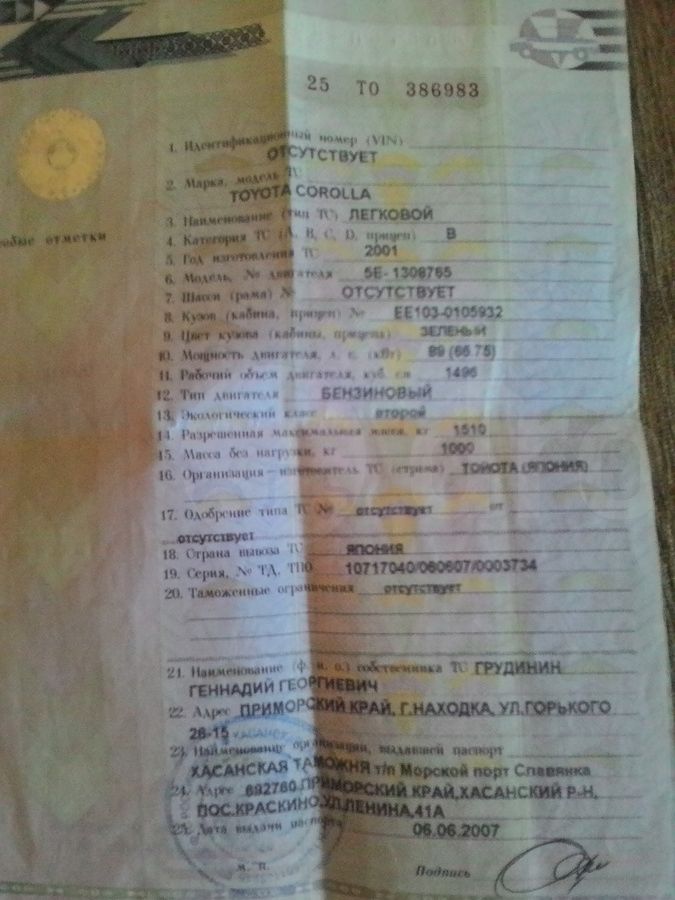 25 ТО 386983
1. Идентификационный номер (VIN)
ОТСУТСТВУЕТ
2. Марка, модель ТС
TOYOTA COROLLA
3. Наименование (тип ТС) ЛЕГКОВОЙ
4. Категория ТС (A, B, C, D, прицеп) B
отметки
5. Год изготовления ТС 2001
6. Модель, № двигателя 5E- 1308765
7. Шасси (рама) № ОТСУТСТВУЕТ
8. Кузов (кабина, прицеп) № EE103-0105932
9. Цвет кузова (кабины, прицепа) ЗЕЛЕНЫЙ
10. Мощность двигателя, л. с. (кВт) 89 (66.75)
11. Рабочий объем двигателя, куб. см 1496
12. Тип двигателя БЕНЗИНОВЫЙ
13. Экологический класс второй
14. Разрешенная максимальная масса, кг 1510
15. Масса без нагрузки, кг 1000
16. Организация-изготовитель ТС (страна) ТОЙОТА (ЯПОНИЯ)
17. Одобрение типа ТС № отсутствует от
отсутствует
18. Страна вывоза ТС ЯПОНИЯ
19. Серия, № ТД, ТПО 10717040/060607/0003734
20. Таможенные ограничения отсутствует
21. Наименование (ф. и. о.) собственника ТС ГРУДИНИН
ГЕННАДИЙ ГЕОРГИЕВИЧ
22. Адрес ПРИМОРСКИЙ КРАЙ, Г.НАХОДКА, УЛ.ГОРЬКОГО
26-15
23. Наименование организации, выдавшей паспорт
ХАСАНСКАЯ ТАМОЖНЯ т/п Морской порт Славянка
24. Адрес 692760 ПРИМОРСКИЙ КРАЙ,ХАСАНСКИЙ Р-Н,
ПОС.КРАСКИНО,УЛ.ЛЕНИНА,41А
25. Дата выдачи паспорта 06.06.2007
М. П. Подпись